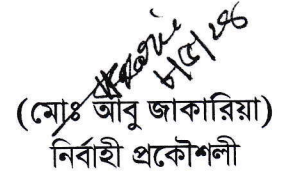 ৮/৫/২৪
(মোঃ আবু জাকারিয়া)
নির্বাহী প্রকৌশলী